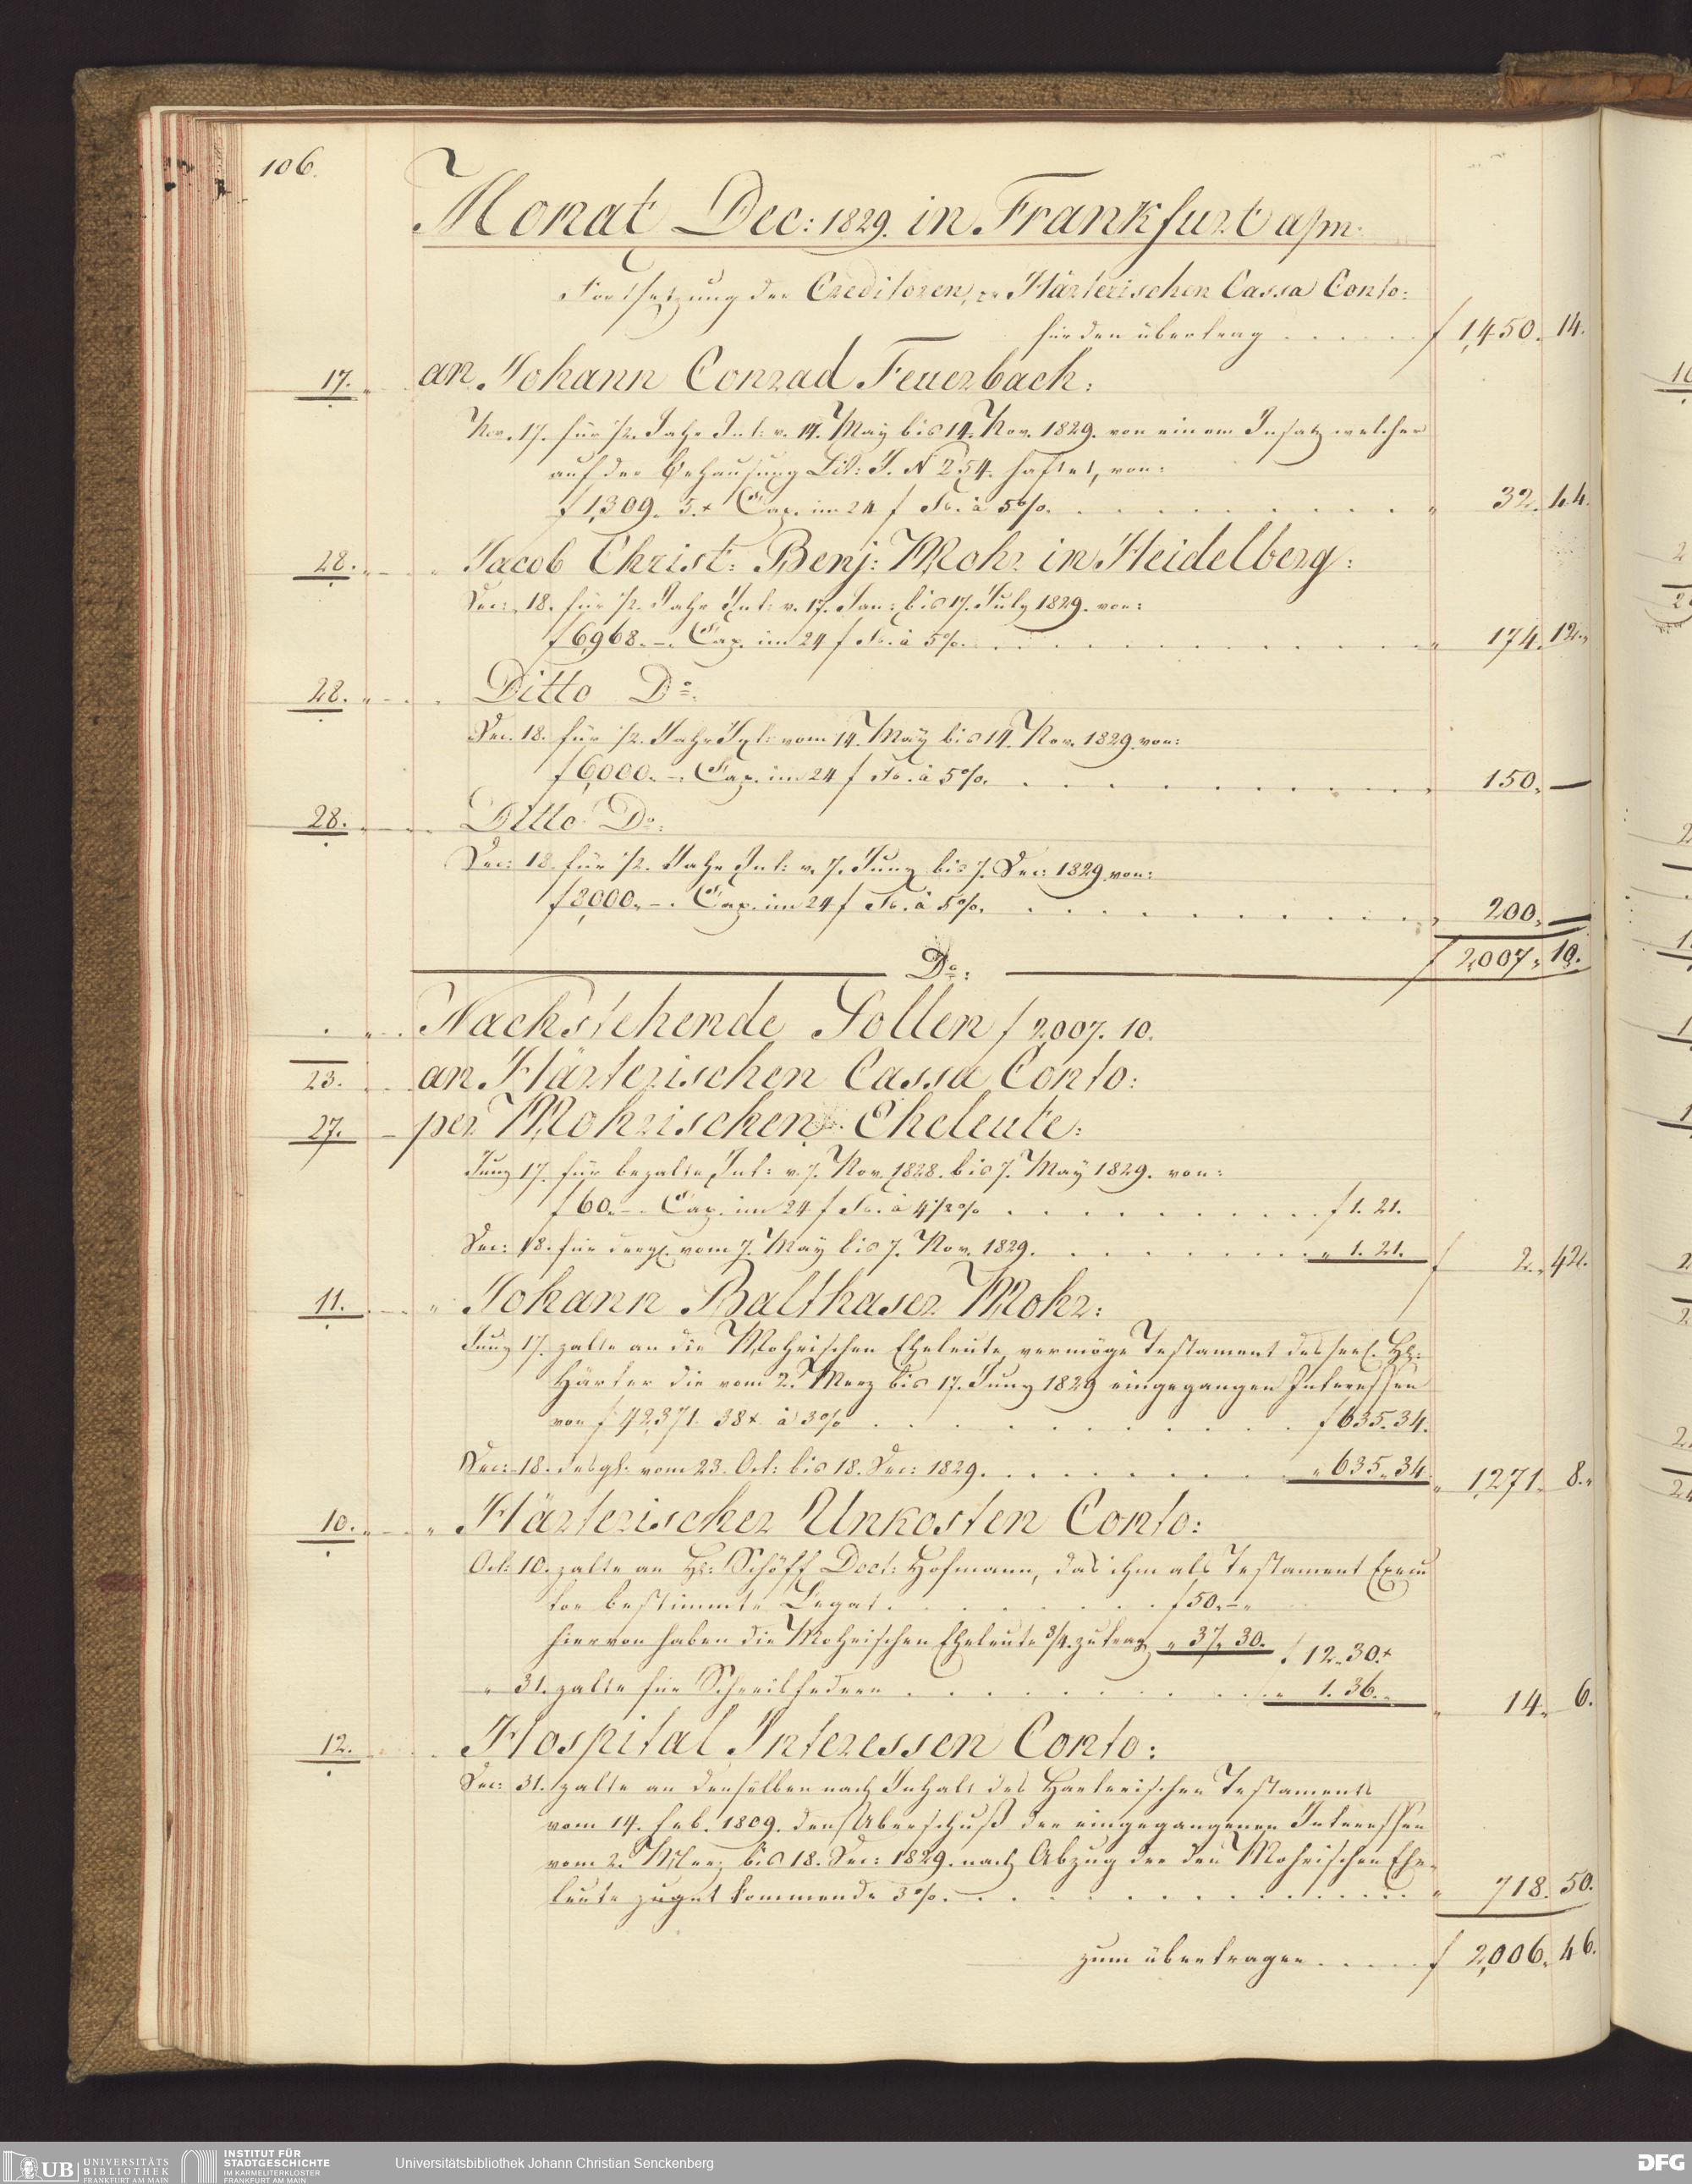 106.
Monat Dec: 1829. in Frankfurt a/m.
Fortsetzung der Creditoren, Härterischen Cassa Conto:
für den übertrag . . . . . . f 1,450. 14.
17. an Johann Conrad Feuerbach:
Nov. 17. für 1/2. Jahr Int: v. 14. May bis 14. Nov. 1829. von einem Insatz welcher
auf der Behausung Lit: J. N 254. haftet, von:
f 1,309. 5.x Cap. im 24 f Fs. à 5%. . . . . . . . . . . " 32. 44.
28. " Jacob Christ: Benj: Mohr in Heidelberg:
Dec: 18. für 1/2. Jahr Int: v. 17. Jan: bis 17. July 1829. von:
f 6,968. –. Cap. im 24 f Fs. à 5%. . . . . . . . . . . " 174. 12.
28. " Ditto Do.
Dec. 18. für 1/2. Jahr Int: vom 14. May bis 14. Nov. 1829. von:
f 6,000. –. Cap. im 24 f Fs. à 5%. . . . . . . . . . . " 150. —
28. " Ditto Do:
Dec: 18. für 1/2. Jahr Int: v. 7. Juny bis 7. Dec: 1829. von:
f 8,000. –. Cap. im 24 f Fs. à 5%. . . . . . . . . . . " 200. —
f 2,007. 10.
Do:
Nachstehende Sollen f 2,007. 10.
23. an Härterischen Cassa Conto:
27. per Mohrischen Eheleute:
Juny 17. für bezalte Int: v. 7. Nov. 1828. bis 7. May 1829. von:
f 60. –. Cap. im 24 f Fs. à 4 1/2% . . . . . . . . . . f 1. 21.
Dec: 18. für dergl. vom 7. May bis 7. Nov. 1829. . . . . . . . " 1. 21. f 2. 42.
11. " Johann Balthaser Mohr:
Juny 17. zalte an die Mohrischen Eheleute, vermöge Testament des seel. Hr:
Härter die vom 2. Merz bis 17. Juny 1829 eingegangen Interessen
von f 42,371. 38x à 3% . . . . . . . . . . f 635. 34.
Dec: 18. desgl. vom 23. Oct: bis 18. Dec: 1829. . . . . . . . . " 635. 34. " 1,271. 8.
10. " Härterischer Unkosten Conto:
Oct: 10. zalte an Hr: Schöff Doct: Hofmann, das ihm als Testament Execu
tor bestimmte Legat . . . . . . . . f 50. –.
hiervon haben die Mohrischen Eheleute 3/4. zu trag " 37. 30. f 12. 30.x
" 31. zalte für Schreibfedern . . . . . . . . . . . " 1. 36. " 14. 6.
12. " Hospital Interessen Conto:
Dec: 31. zalte an denselben nach Inhalt des Harterischen Testaments
vom 14. Feb. 1809. den Überschuß der eingegangenen Interessen
vom 2. Merz bis 18. Dec: 1829. nach Abzug der den Mohrischen Ehe-
leute zugut kommende 3%. . . . . . . . . . . . . . " 718. 50.
zum übertragen . . . . . f 2,006. 46.
UB UNIVERSITÄTS
BIBLIOTHEK
FRANKFURT AM MAIN
INSTITUT FÜR
STADTGESCHICHTE
IM KARMELITERKLOSTER
FRANKFURT AM MAIN
Universitätsbibliothek Johann Christian Senckenberg
DFG